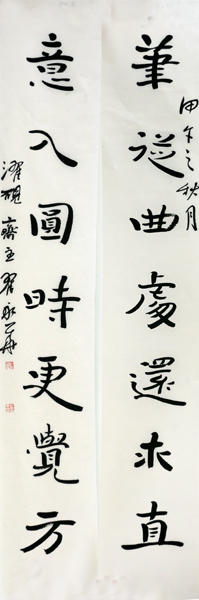 筆從曲處還求直
甲午之秋月
意入圓時更覺方
濯硯齋主翟永華